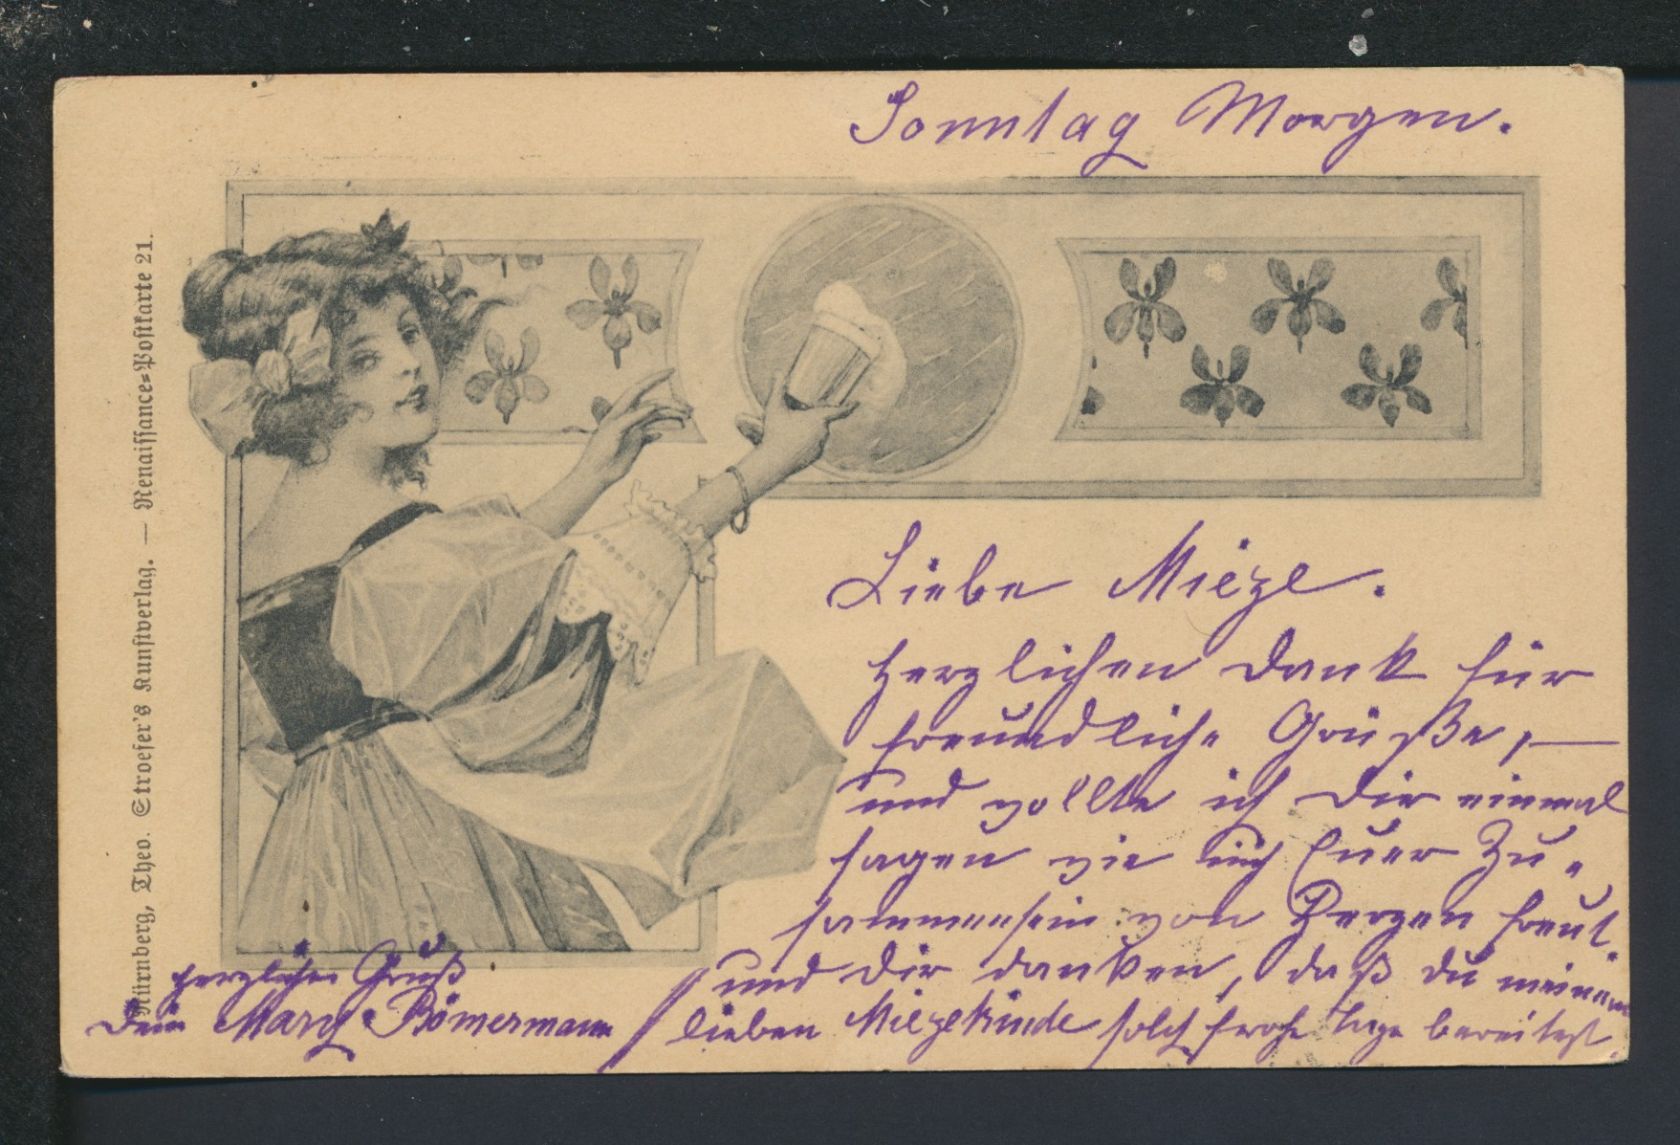 Sonntag Morgen.
Nürnberg, Theo. Stroefer's Kunstverlag. — Renaissance-Postkarte 21.
Liebe Mieze.
Herzlichen Dank für
freundliche Grüße, —
und wollte ich Dir einmal
sagen wie mich Euer Zu-
sammensein von Herzen freut.
und Dir danken, daß Du meinem
lieben Miezekinde solch frohe Tage bereitest.
herzlichen Gruß
Dein Mary